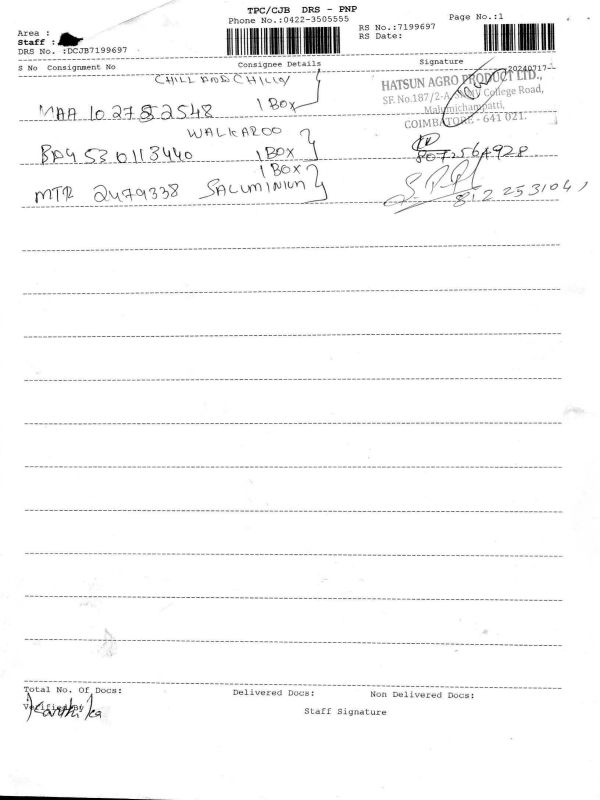 TPC/CJB DRS - PNP
Phone No.:0422-3505555
Page No.:1
Area :
RS No.:7199697
Staff :
RS Date:
DRS No. :DCJB7199697
S No Consignment No Consignee Details Signature 20240717
CHILL AND CHILLY
HATSUN AGRO PRODUCT LTD.,
SF. No.187/2-A, College Road,
MAA 102782548 1 BOX
Malumichampatti,
COIMBATORE - 641 021.
WALKAROO
BAY530113440 1 BOX
8072564928
1 BOX
MTR 2479338 SALUMINIUM
812253104,
Total No. Of Docs: Delivered Docs: Non Delivered Docs:
Verified By
Karthika
Staff Signature